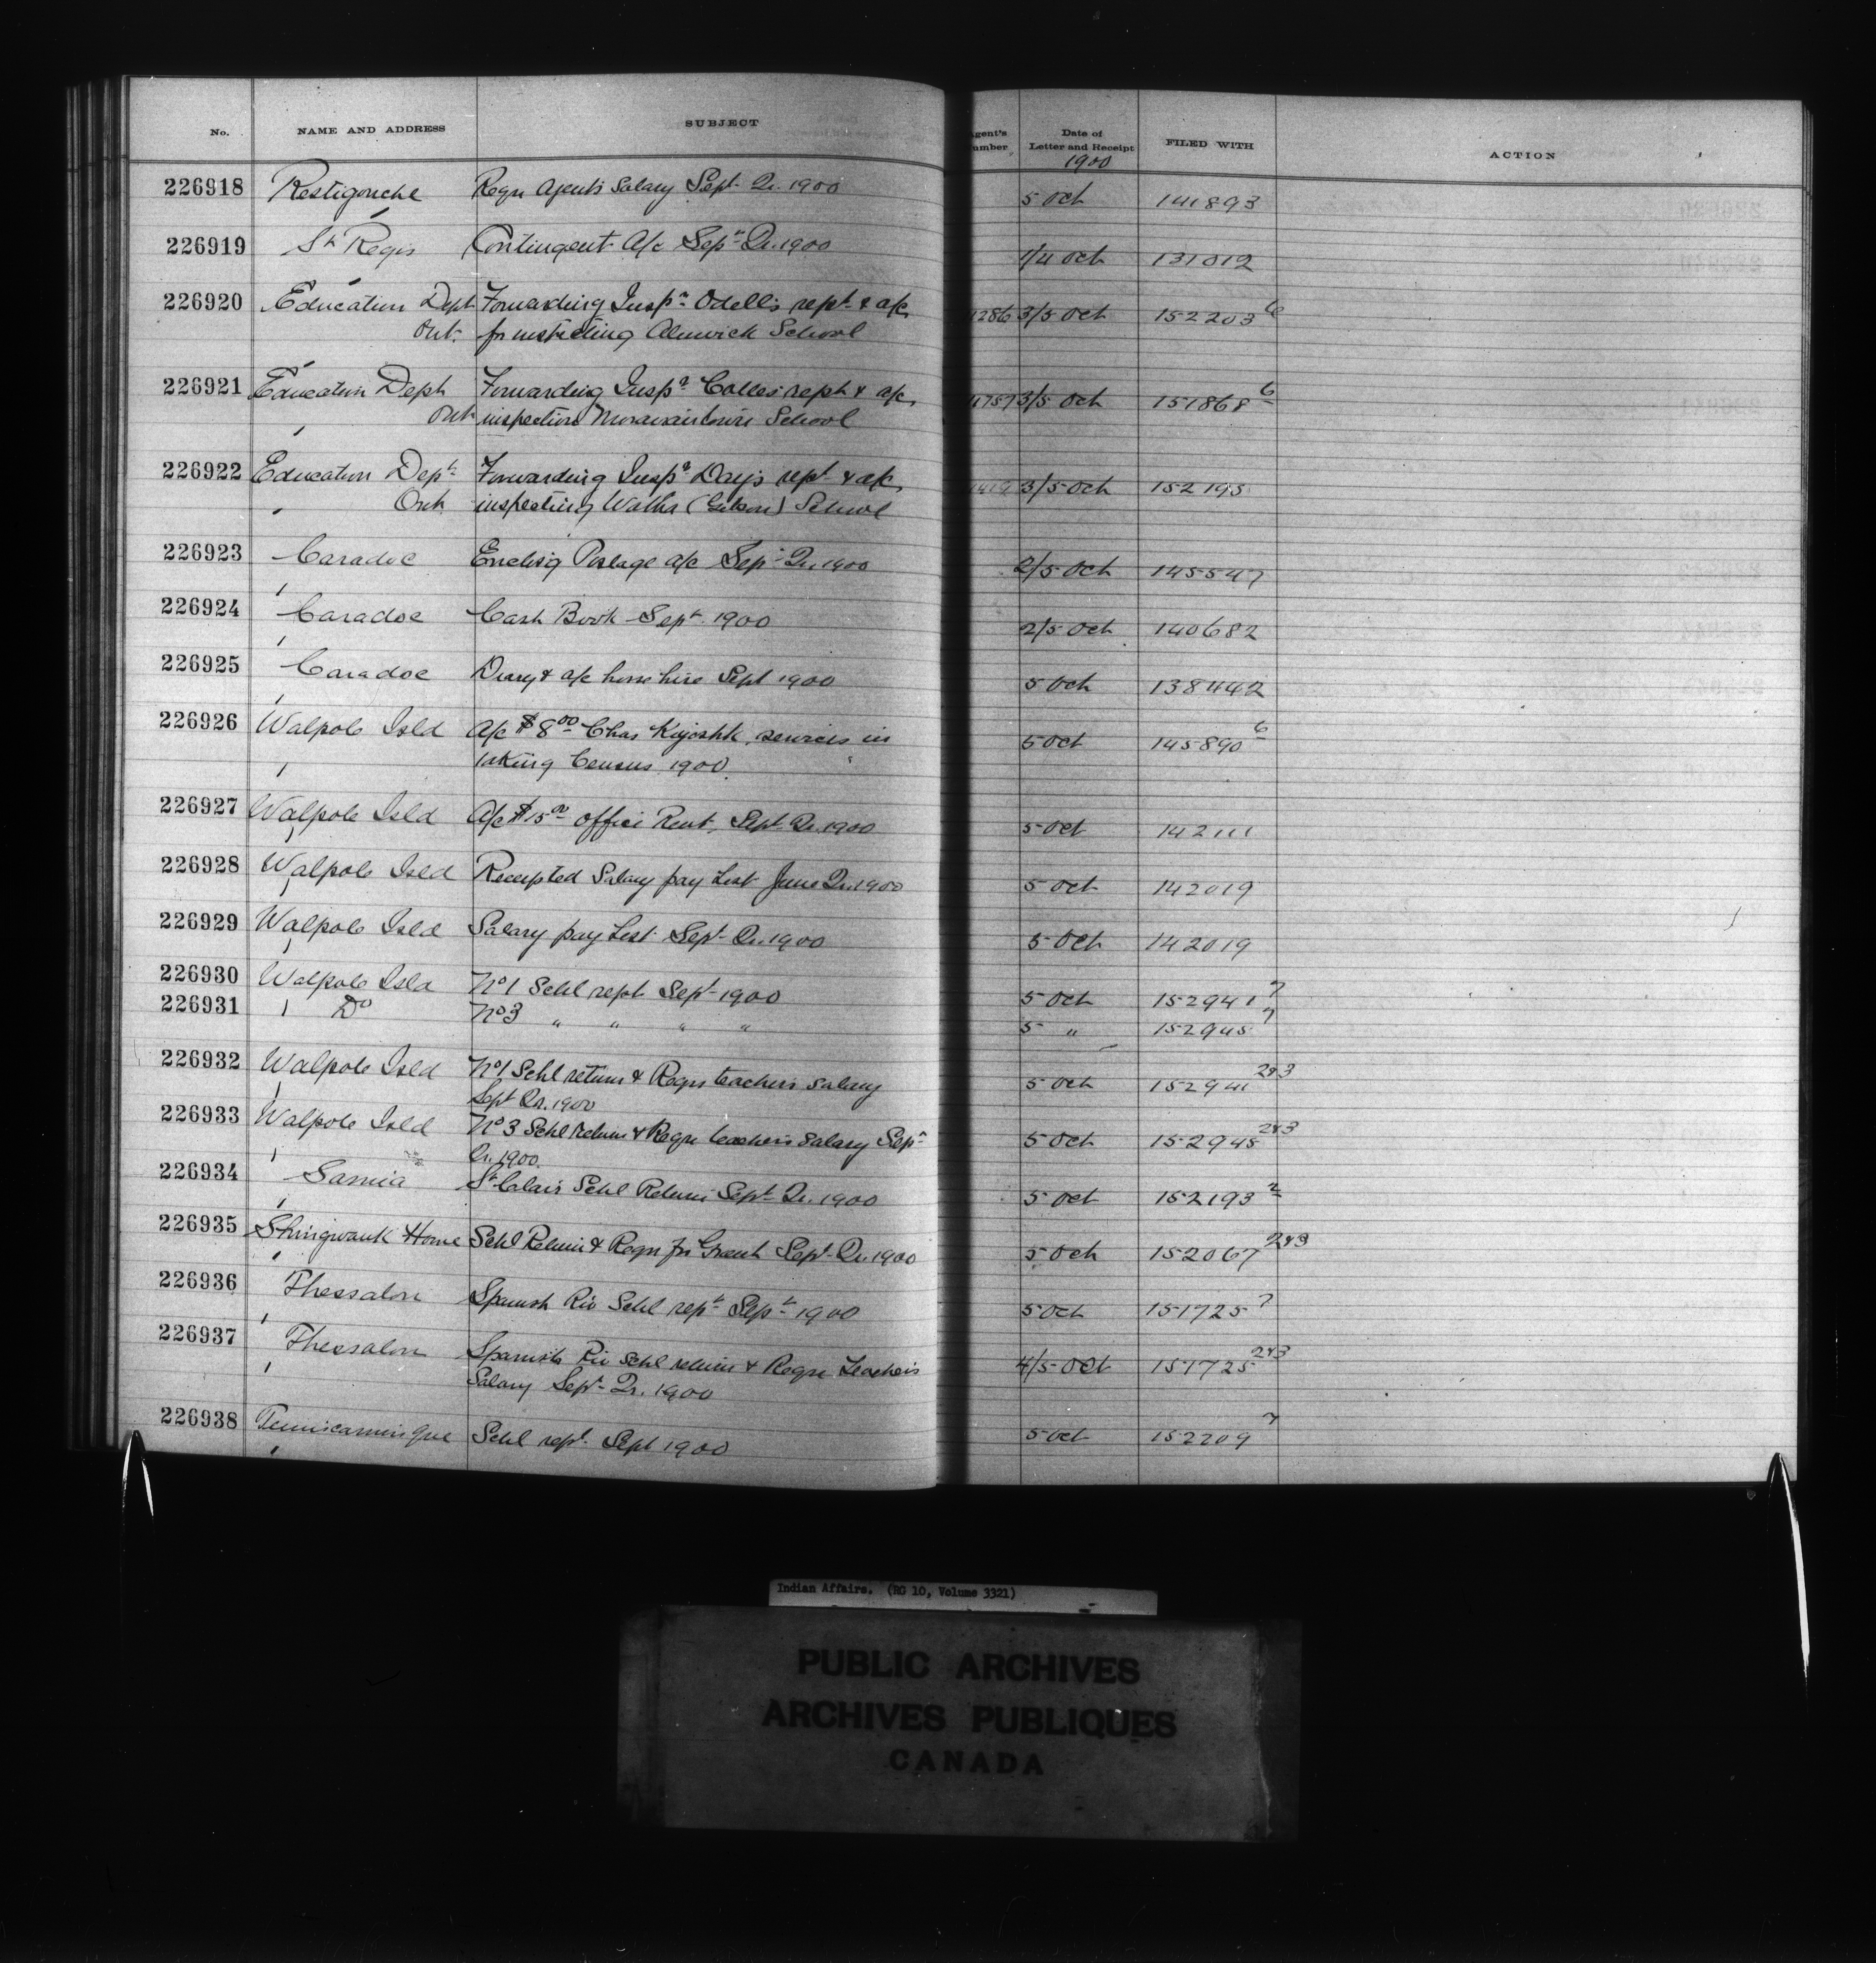 No. NAME AND ADDRESS SUBJECT Agent's Number Date of Letter and Receipt FILED WITH ACTION
1900
226918 Restigouche Reqn Agent's Salary Sept. Qr. 1900 5 Oct 141893
226919 St Regis Contingent A/c Sept Qr. 1900 1/4 Oct 131012
226920 Education Dept Forwarding Inspr Odell's rept & a/c 1286 3/5 Oct 152203 6
Ont. for inspecting Alnwick School
226921 Education Dept Forwarding Inspr Colles' rept & a/c 4757 3/5 Oct 151868 6
Ont inspection Moraviantown School
226922 Education Dept Forwarding Inspr Day's rept & a/c 3/5 Oct 152195
Ont inspecting Watha (Gibson) School
226923 Caradoc Enclosg Postage a/c Sept Qr. 1900 2/5 Oct 145547
226924 Caradoc Cash Book Sept. 1900 2/5 Oct 140682
226925 Caradoc Diary & a/c horse hire Sept 1900 5 Oct 138442
226926 Walpole Isld A/c $8 00 Chas Kiyoshk, services in 5 Oct 145890 6
taking Census 1900.
226927 Walpole Isld A/c $15 00 Office Rent, Sept Qr. 1900 5 Oct 142111
226928 Walpole Isld Receipted Salary pay List June Qr. 1900 5 Oct 142019
226929 Walpole Isld Salary pay List Sept Qr. 1900 5 Oct 142019
226930 Walpole Isld No 1 Schl rept Sept 1900 5 Oct 152941 7
226931 Do No 3 " " " " 5 " 152945 7
226932 Walpole Isld No 1 Schl return & Reqn teacher's salary 5 Oct 152941 2&3
Sept Qr. 1900
226933 Walpole Isld No 3 Schl Return & Reqn teacher's salary Sept 5 Oct 152945 2&3
Qr. 1900.
226934 Sarnia St Clair Schl Return Sept Qr. 1900 5 Oct 152193 2
226935 Shingwauk Home Schl Return & Reqn for Grant Sept Qr. 1900 5 Oct 152067 2&3
226936 Thessalon Spanish Riv Schl rept Sept 1900 5 Oct 151725 7
226937 Thessalon Spanish Riv Schl return & Reqn Teacher's 4/5 Oct 151725 2&3
Salary Sept Qr. 1900
226938 Temiscamingue Schl rept. Sept 1900 5 Oct 152209 7
Indian Affairs. (RG 10, Volume 3321)
PUBLIC ARCHIVES
ARCHIVES PUBLIQUES
CANADA